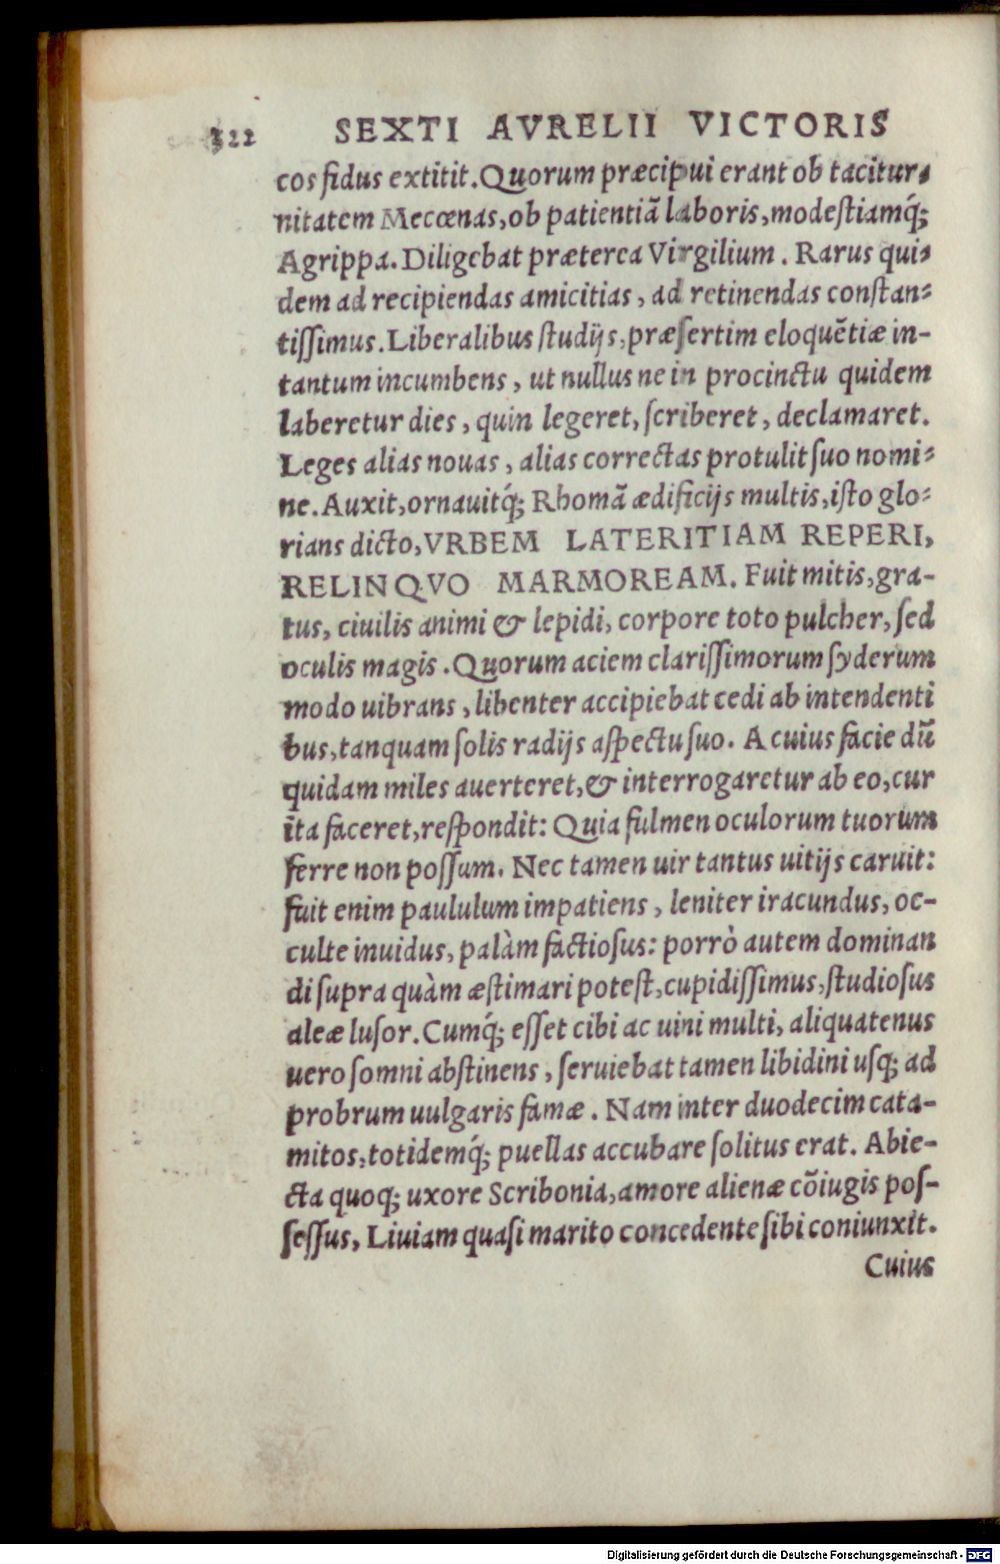 322 SEXTI AVRELII VICTORIS
cos fidus extitit. Quorum præcipui erant ob tacitur-
nitatem Mecœnas, ob patientiã laboris, modestiamq́;
Agrippa. Diligebat præterea Virgilium. Rarus qui-
dem ad recipiendas amicitias, ad retinendas constan-
tissimus. Liberalibus studijs, præsertim eloquẽtiæ in-
tantum incumbens, ut nullus ne in procinctu quidem
laberetur dies, quin legeret, scriberet, declamaret.
Leges alias nouas, alias correctas protulit suo nomi-
ne. Auxit, ornauitq́; Rhomã ædificijs multis, isto glo-
rians dicto, VRBEM LATERITIAM REPERI,
RELINQVO MARMOREAM. Fuit mitis, gra-
tus, ciuilis animi & lepidi, corpore toto pulcher, sed
oculis magis. Quorum aciem clarissimorum syderum
modo uibrans, libenter accipiebat cedi ab intendenti
bus, tanquam solis radijs aspectu suo. A cuius facie dũ
quidam miles auerteret, & interrogaretur ab eo, cur
ita faceret, respondit: Quia fulmen oculorum tuorum
ferre non possum. Nec tamen uir tantus uitijs caruit:
fuit enim paululum impatiens, leniter iracundus, oc-
culte inuidus, palàm factiosus: porrò autem dominan
di supra quàm æstimari potest, cupidissimus, studiosus
aleæ lusor. Cumq́; esset cibi ac uini multi, aliquatenus
uero somni abstinens, seruiebat tamen libidini usq; ad
probrum uulgaris famæ. Nam inter duodecim cata-
mitos, totidemq́; puellas accubare solitus erat. Abie-
cta quoq; uxore Scribonia, amore alienæ cõiugis pos-
sessus, Liuiam quasi marito concedente sibi coniunxit.
Cuius
Digitalisierung gefördert durch die Deutsche Forschungsgemeinschaft - DFG